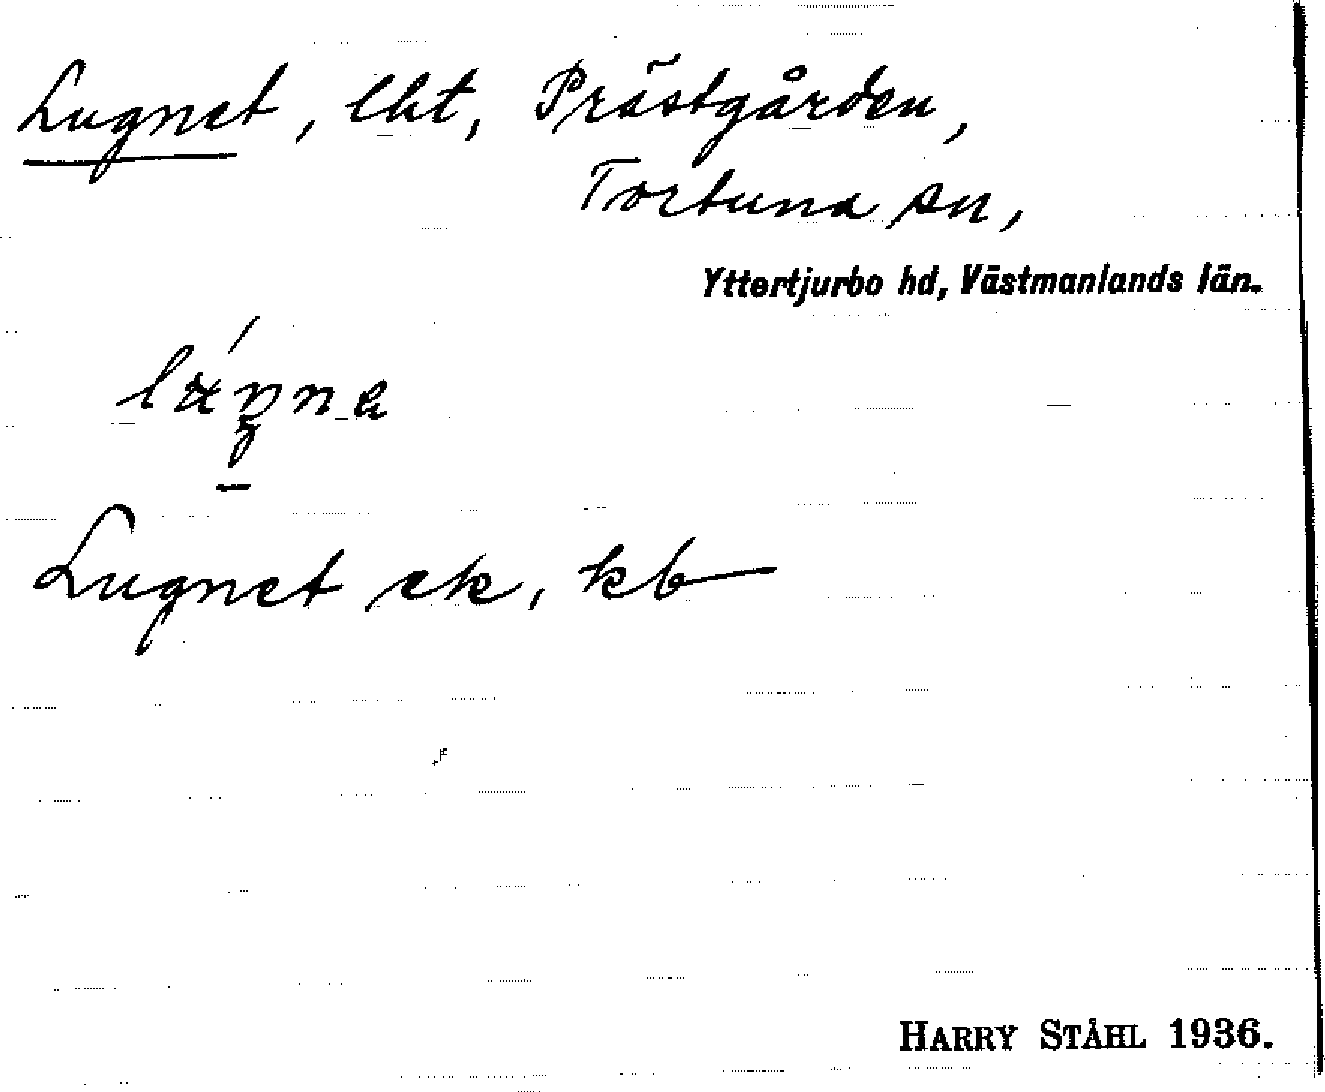 Lugnet, lht, Prästgården,
Tortuna sn,
Yttertjurbo hd, Västmanlands län.
Lugnet ek, kb
HARRY STÅHL 1936.